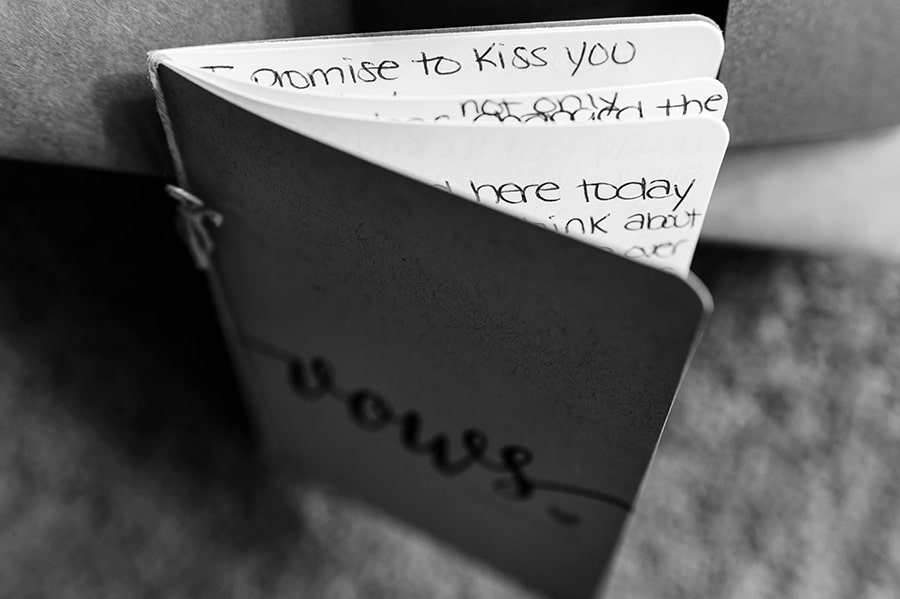 I promise to kiss you
not only
the
here today
think about
over
vows